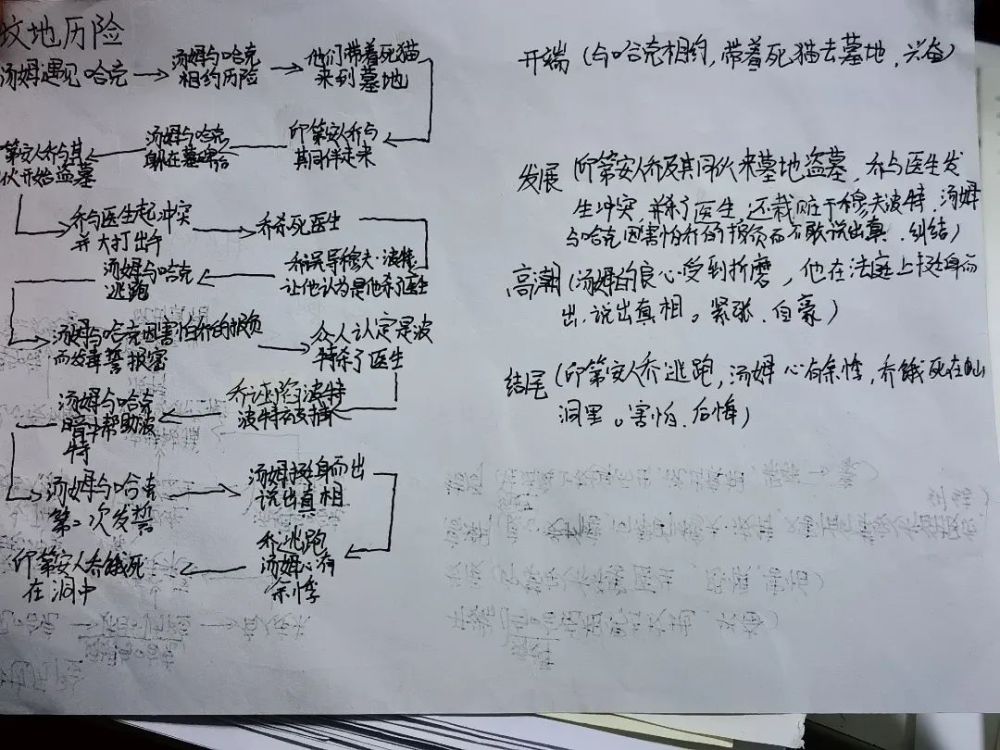 坟地历险
汤姆遇见哈克
汤姆与哈克
相约历险
他们带着死猫
来到墓地
印第安人乔与
其同伴走来
汤姆与哈克
躲在墓碑后
第安人乔与其
伙开始盗墓
乔与医生起冲突
并大打出手
乔杀死医生
乔误导穆夫·波特
让他认为是他杀了医生
汤姆与哈克
逃跑
汤姆与哈克因害怕乔的报负
而发毒誓报密
众人认定是波
特杀了医生
乔证波特
波特被捕
汤姆与哈克
暗中帮助波
特
汤姆与哈克
第二次发誓
汤姆挺身而出
说出真相
乔逃跑
汤姆心有
余悸
印第安人乔饿死
在洞中
开端(与哈克相约,带着死猫去墓地,兴奋)
发展(印第安人乔及其同伙来墓地盗墓,乔与医生发
生冲突,并杀了医生,还栽赃于穆夫波特,汤姆
与哈克因害怕乔的报负而不敢说出真.纠结)
高潮(汤姆的良心受到折磨,他在法庭上挺身而
出,说出真相。紧张.自豪)
结尾(印第安人乔逃跑,汤姆心有余悸,乔饿死在山
洞里。害怕.后悔)